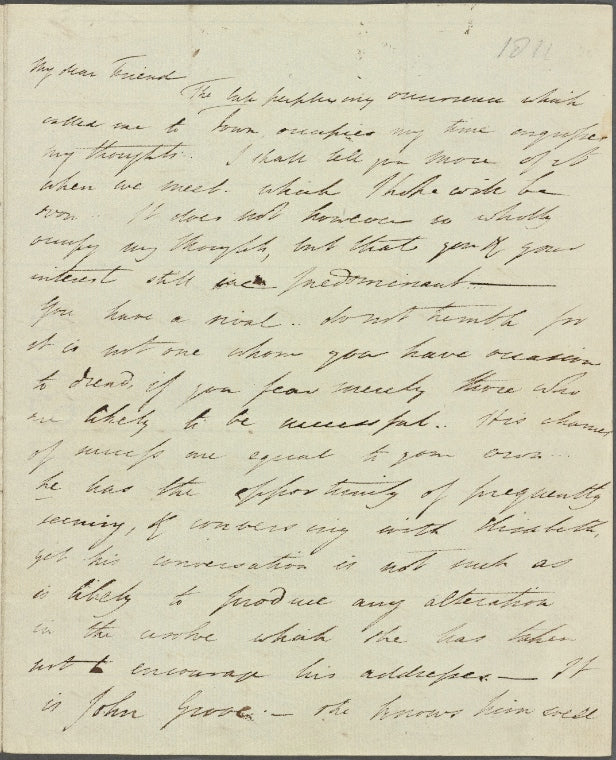 1811
My dear Friend
The late perplexing occurrence which
called me to Town, occupies my time engrosses
my thoughts. I shall tell you more of it
when we meet. which I hope will be
soon. It does not however so wholly
occupy my thoughts, but that you & your
interest still are predominant —
You have a rival .. do not tremble for
it is not one whom you have occasion
to dread, if you fear merely those who
are likely to be successful .. His chances
of success are equal to your own ..
he has the opportunity of frequently
seeing, & conversing with Elizabeth,
yet his conversation is not such as
is likely to produce any alteration
in the resolve which she has taken
not to encourage his addresses. — It
is John Grove — she knows him well